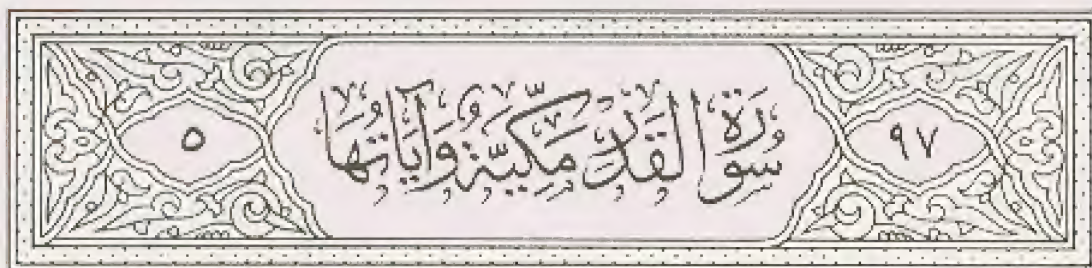 ٩٧ سُورَةُ الْقَدْرِ مَكِّيَّة وَآيَاتُهَا ٥